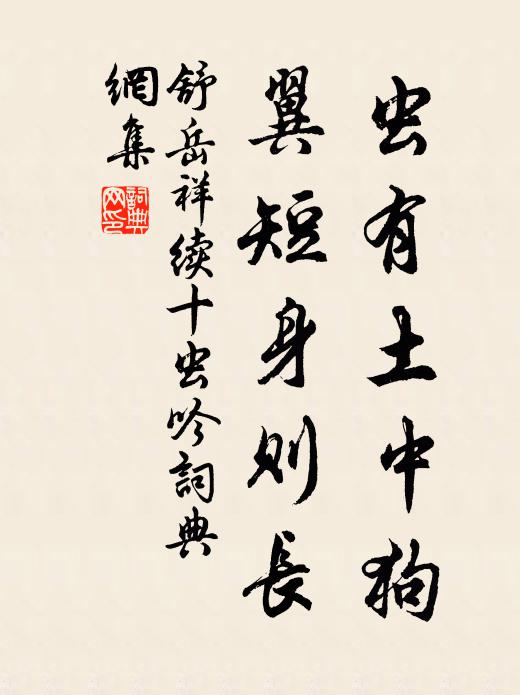 虫有土中狗
翼短身则長
舒岳祥续十虫吟詞典
網集
詞典网印